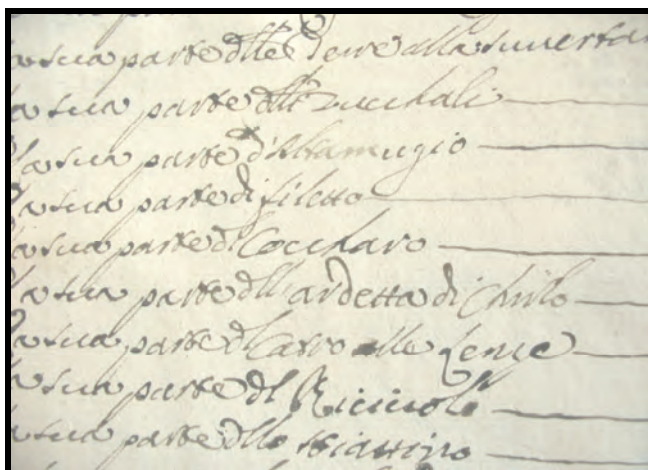 la sua parte dlle Terre alla suverta
la sua parte dlli Zucchali
la sua parte d'Altamugio
la sua parte di filetto
la sua parte dl Coccharo
la sua parte dll'ardetta di Chirlo
la sua parte dl Carro alle Lenze
la sua parte dl Ricciolo
la sua parte dllo